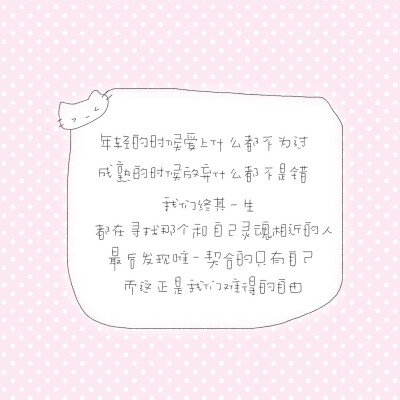 年轻的时候爱上什么都不为过
成熟的时候放弃什么都不是错
我们终其一生
都在寻找那个和自己灵魂相近的人
最后发现唯一契合的只有自己
而这正是我们难得的自由